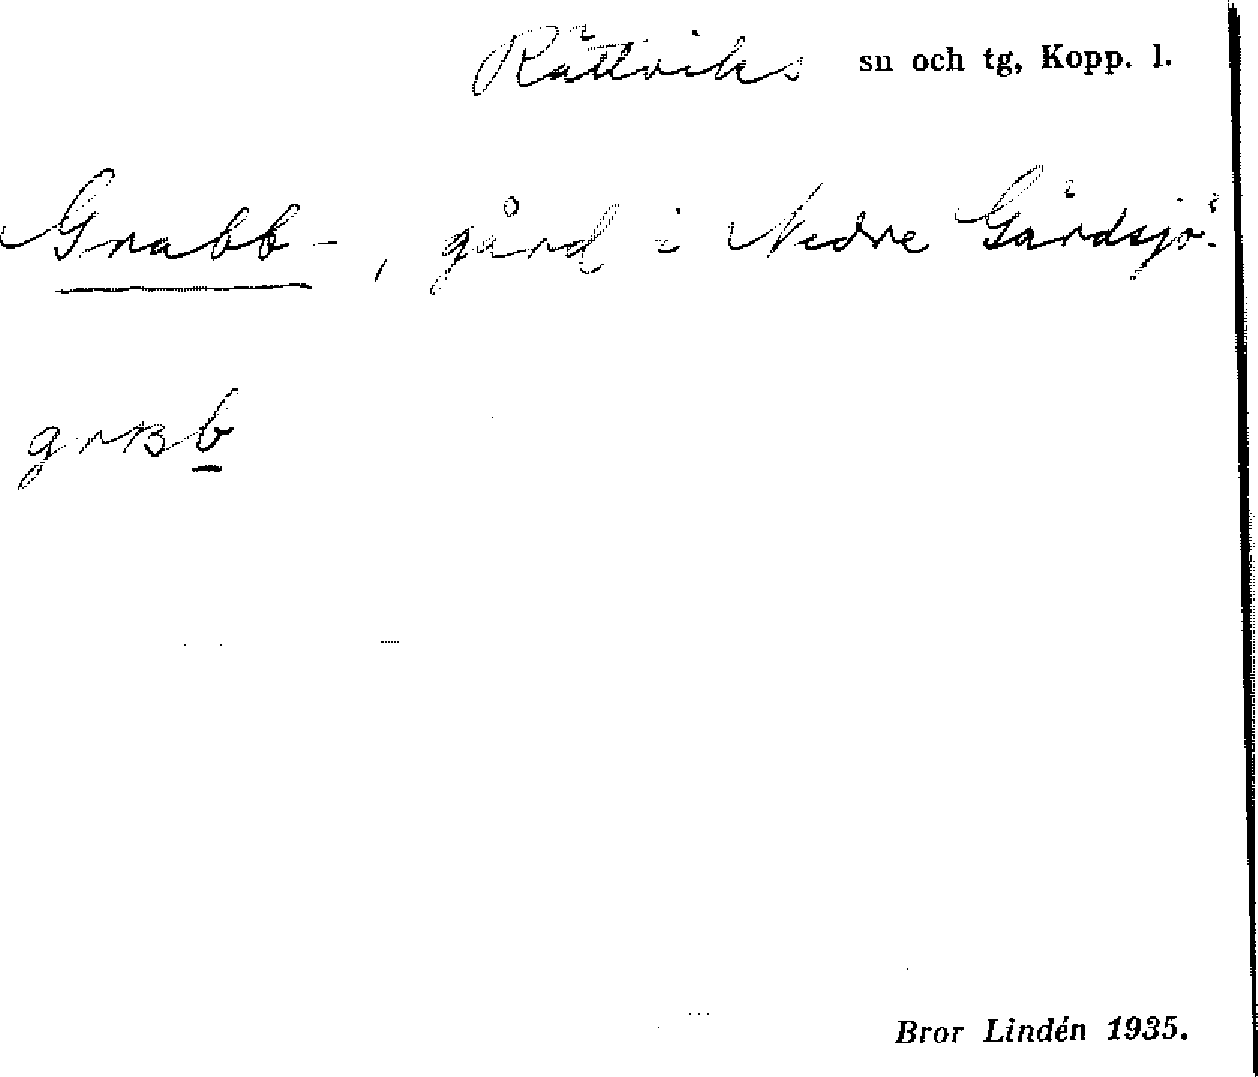 Rättviks sn och tg, Kopp. l.
Grabb-, gård i Nedre Gärdsjö.
grʙb
Bror Lindén 1935.